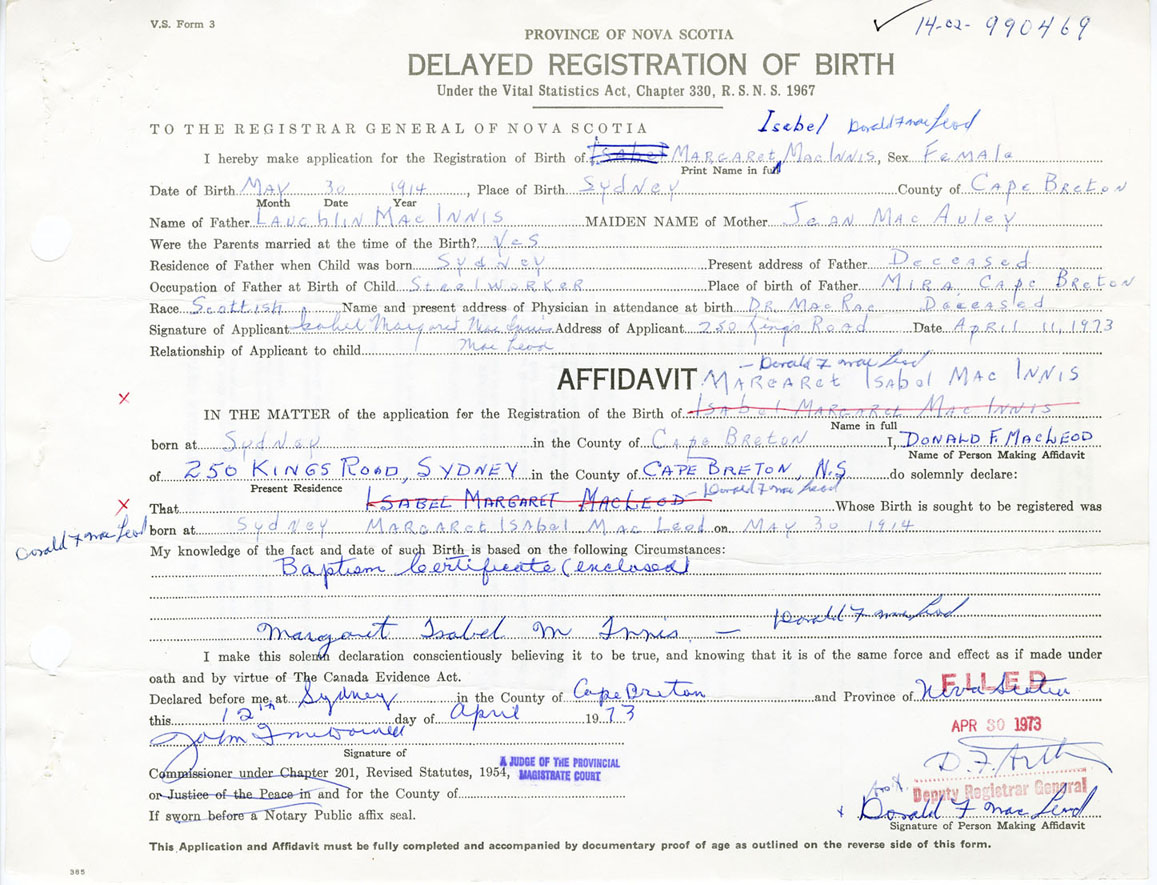 V.S. Form 3
14-02-990469
PROVINCE OF NOVA SCOTIA
DELAYED REGISTRATION OF BIRTH
Under the Vital Statistics Act, Chapter 330, R.S.N.S. 1967
TO THE REGISTRAR GENERAL OF NOVA SCOTIA Isabel Donald F MacLeod
I hereby make application for the Registration of Birth of Isabel MARGARET MACINNIS, Sex FEMALe
Print Name in full
Date of Birth MAY 30 1914, Place of Birth SYDNEY County of CAPE BRETON
Month Date Year
Name of Father LAUGhLIN MAC INNIS MAIDEN NAME of Mother JEAN MAC AuleY
Were the Parents married at the time of the Birth? YeS
Residence of Father when Child was born SYdNEY Present address of Father Deceased
Occupation of Father at Birth of Child SteelWORKER Place of birth of Father MIRA CAPe BReTON
Race Scottish Name and present address of Physician in attendance at birth DR. MacRae Deceased
Signature of Applicant Isabel Margaret Mac Innis Address of Applicant 250 King's Road Date April 11, 1973
Relationship of Applicant to child Mac Leod
- Donald F MacLeod
AFFIDAVIT MARGARet ISAbel MAC INNIS
x
IN THE MATTER of the application for the Registration of the Birth of Isabel MARGARet Mac INNIS
Name in full
born at Sydney in the County of Cape Breton I, DONALD F. MACLEOD
Name of Person Making Affidavit
of 250 KINGS ROAD, SYDNEY in the County of CAPE BRETON, N.S. do solemnly declare:
Present Residence
x That ISABEL MARGARET MACLEOD - Donald F MacLeod Whose Birth is sought to be registered was
Donald F MacLeod born at Sydney MARGARet ISAbel Mac Leod on MAY 30 1914
My knowledge of the fact and date of such Birth is based on the following Circumstances:
Baptism Certificate (enclosed)
Margaret Isabel M Innis. - Donald F MacLeod
I make this solemn declaration conscientiously believing it to be true, and knowing that it is of the same force and effect as if made under
oath and by virtue of The Canada Evidence Act.
Declared before me at Sydney in the County of Cape Breton and Province of Nova Scotia
FILED
this 12th day of April 1973
APR 30 1973
Signature of
A JUDGE OF THE PROVINCIAL
MAGISTRATE COURT
Commissioner under Chapter 201, Revised Statutes, 1954,
or Justice of the Peace in and for the County of
Deputy Registrar General
x Donald F MacLeod
If sworn before a Notary Public affix seal.
Signature of Person Making Affidavit
This Application and Affidavit must be fully completed and accompanied by documentary proof of age as outlined on the reverse side of this form.
365